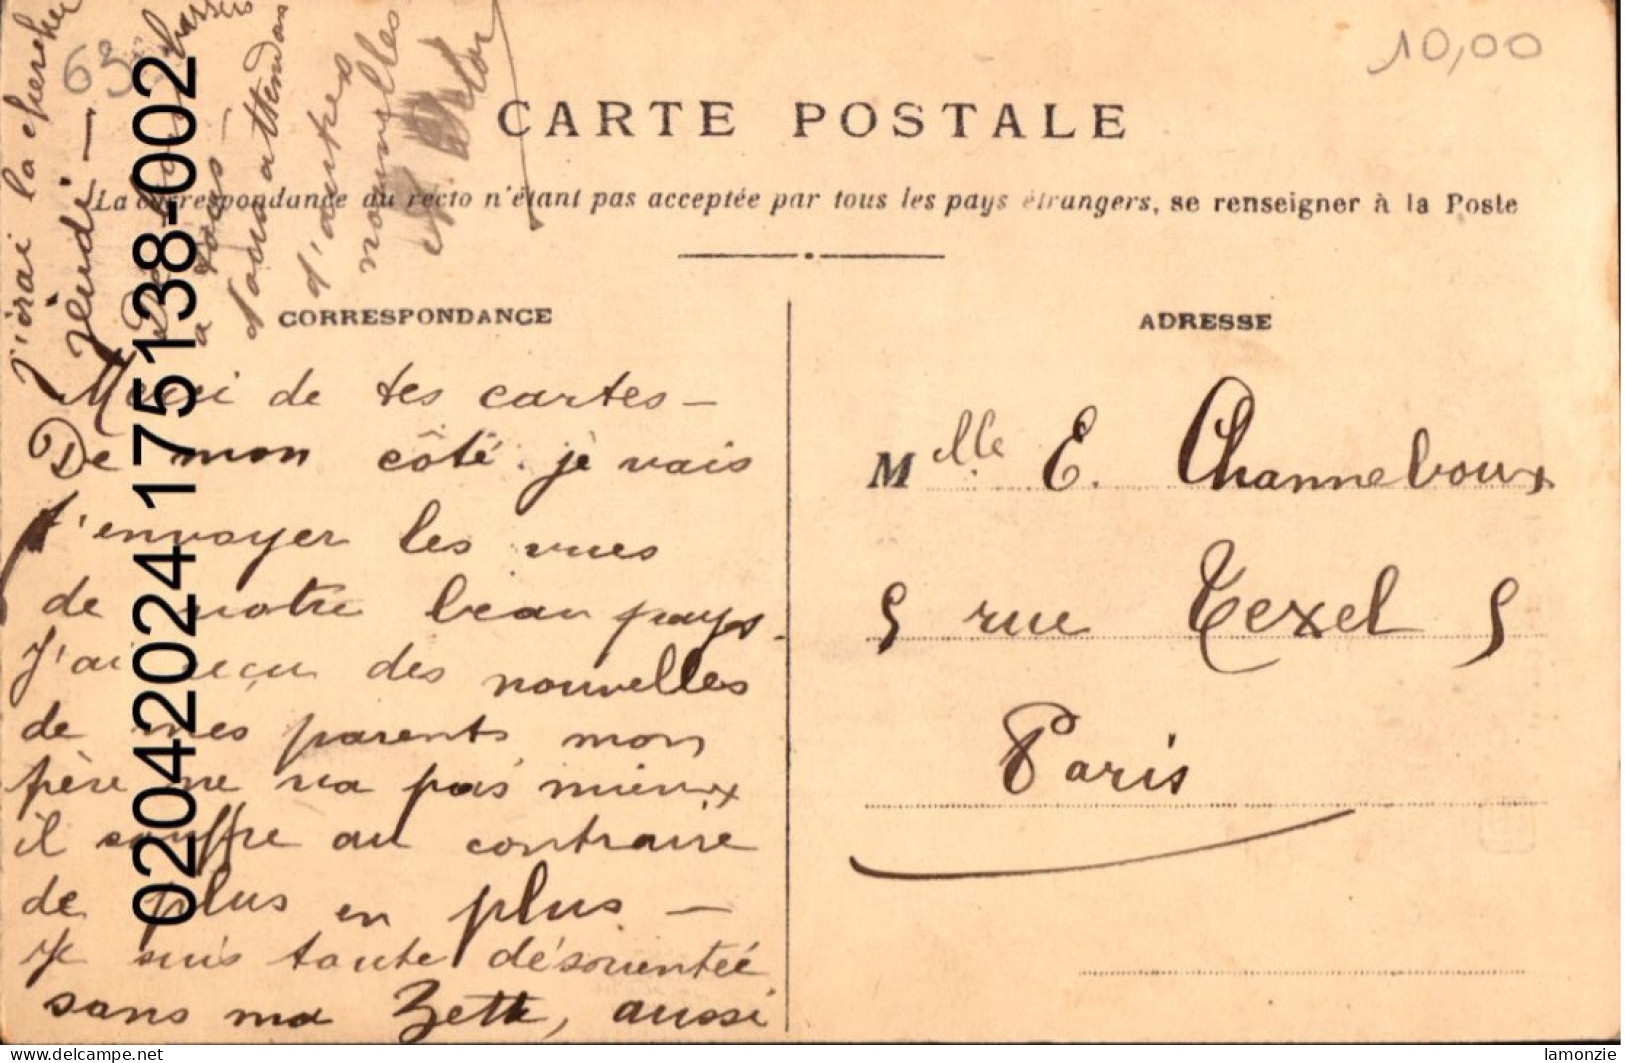 10,00
63
CARTE POSTALE
La correspondance au recto n'étant pas acceptée par tous les pays étrangers, se renseigner à la Poste
CORRESPONDANCE
Merci de tes cartes —
De mon côté je vais
t'envoyer les vues
de notre beau pays.
J'ai reçu des nouvelles
de mes parents mon
père ne va pas mieux
il souffre au contraire
de plus en plus —
Je suis toute désorientée
sans ma Zette, aussi
j'irai la chercher
Jeudi —
baisers
à tous —
en attendant
d'autres
nouvelles
ADRESSE
Melle E. Channeboux
5 rue Texel 5
Paris
02042024 175138-002
delcampe.net
lamonzie